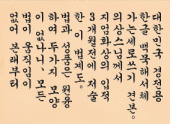 대한민국 경전용
한글 백묵해서체
가는세로쓰기 견본.
의상스님께서
지엄화상의 입적
3개월전에 저술
한 이 법계도.
법과 성품은 원융
하여 두가지 모양
이 없나니 모든
법이 움직임이
없어 본래부터